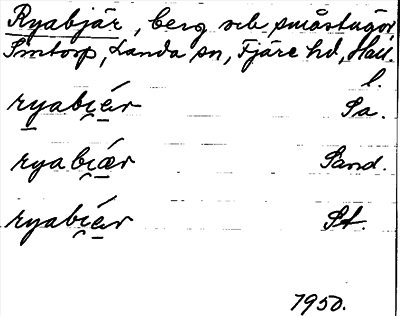 Ryabjär, berg och småstugor,
Smtorp, Landa sn, Fjäre hd, Hall.
l.
ryabi̯ér Sa.
ryabi̯ǽr Sand.
ryabi̯ér St.
1950.